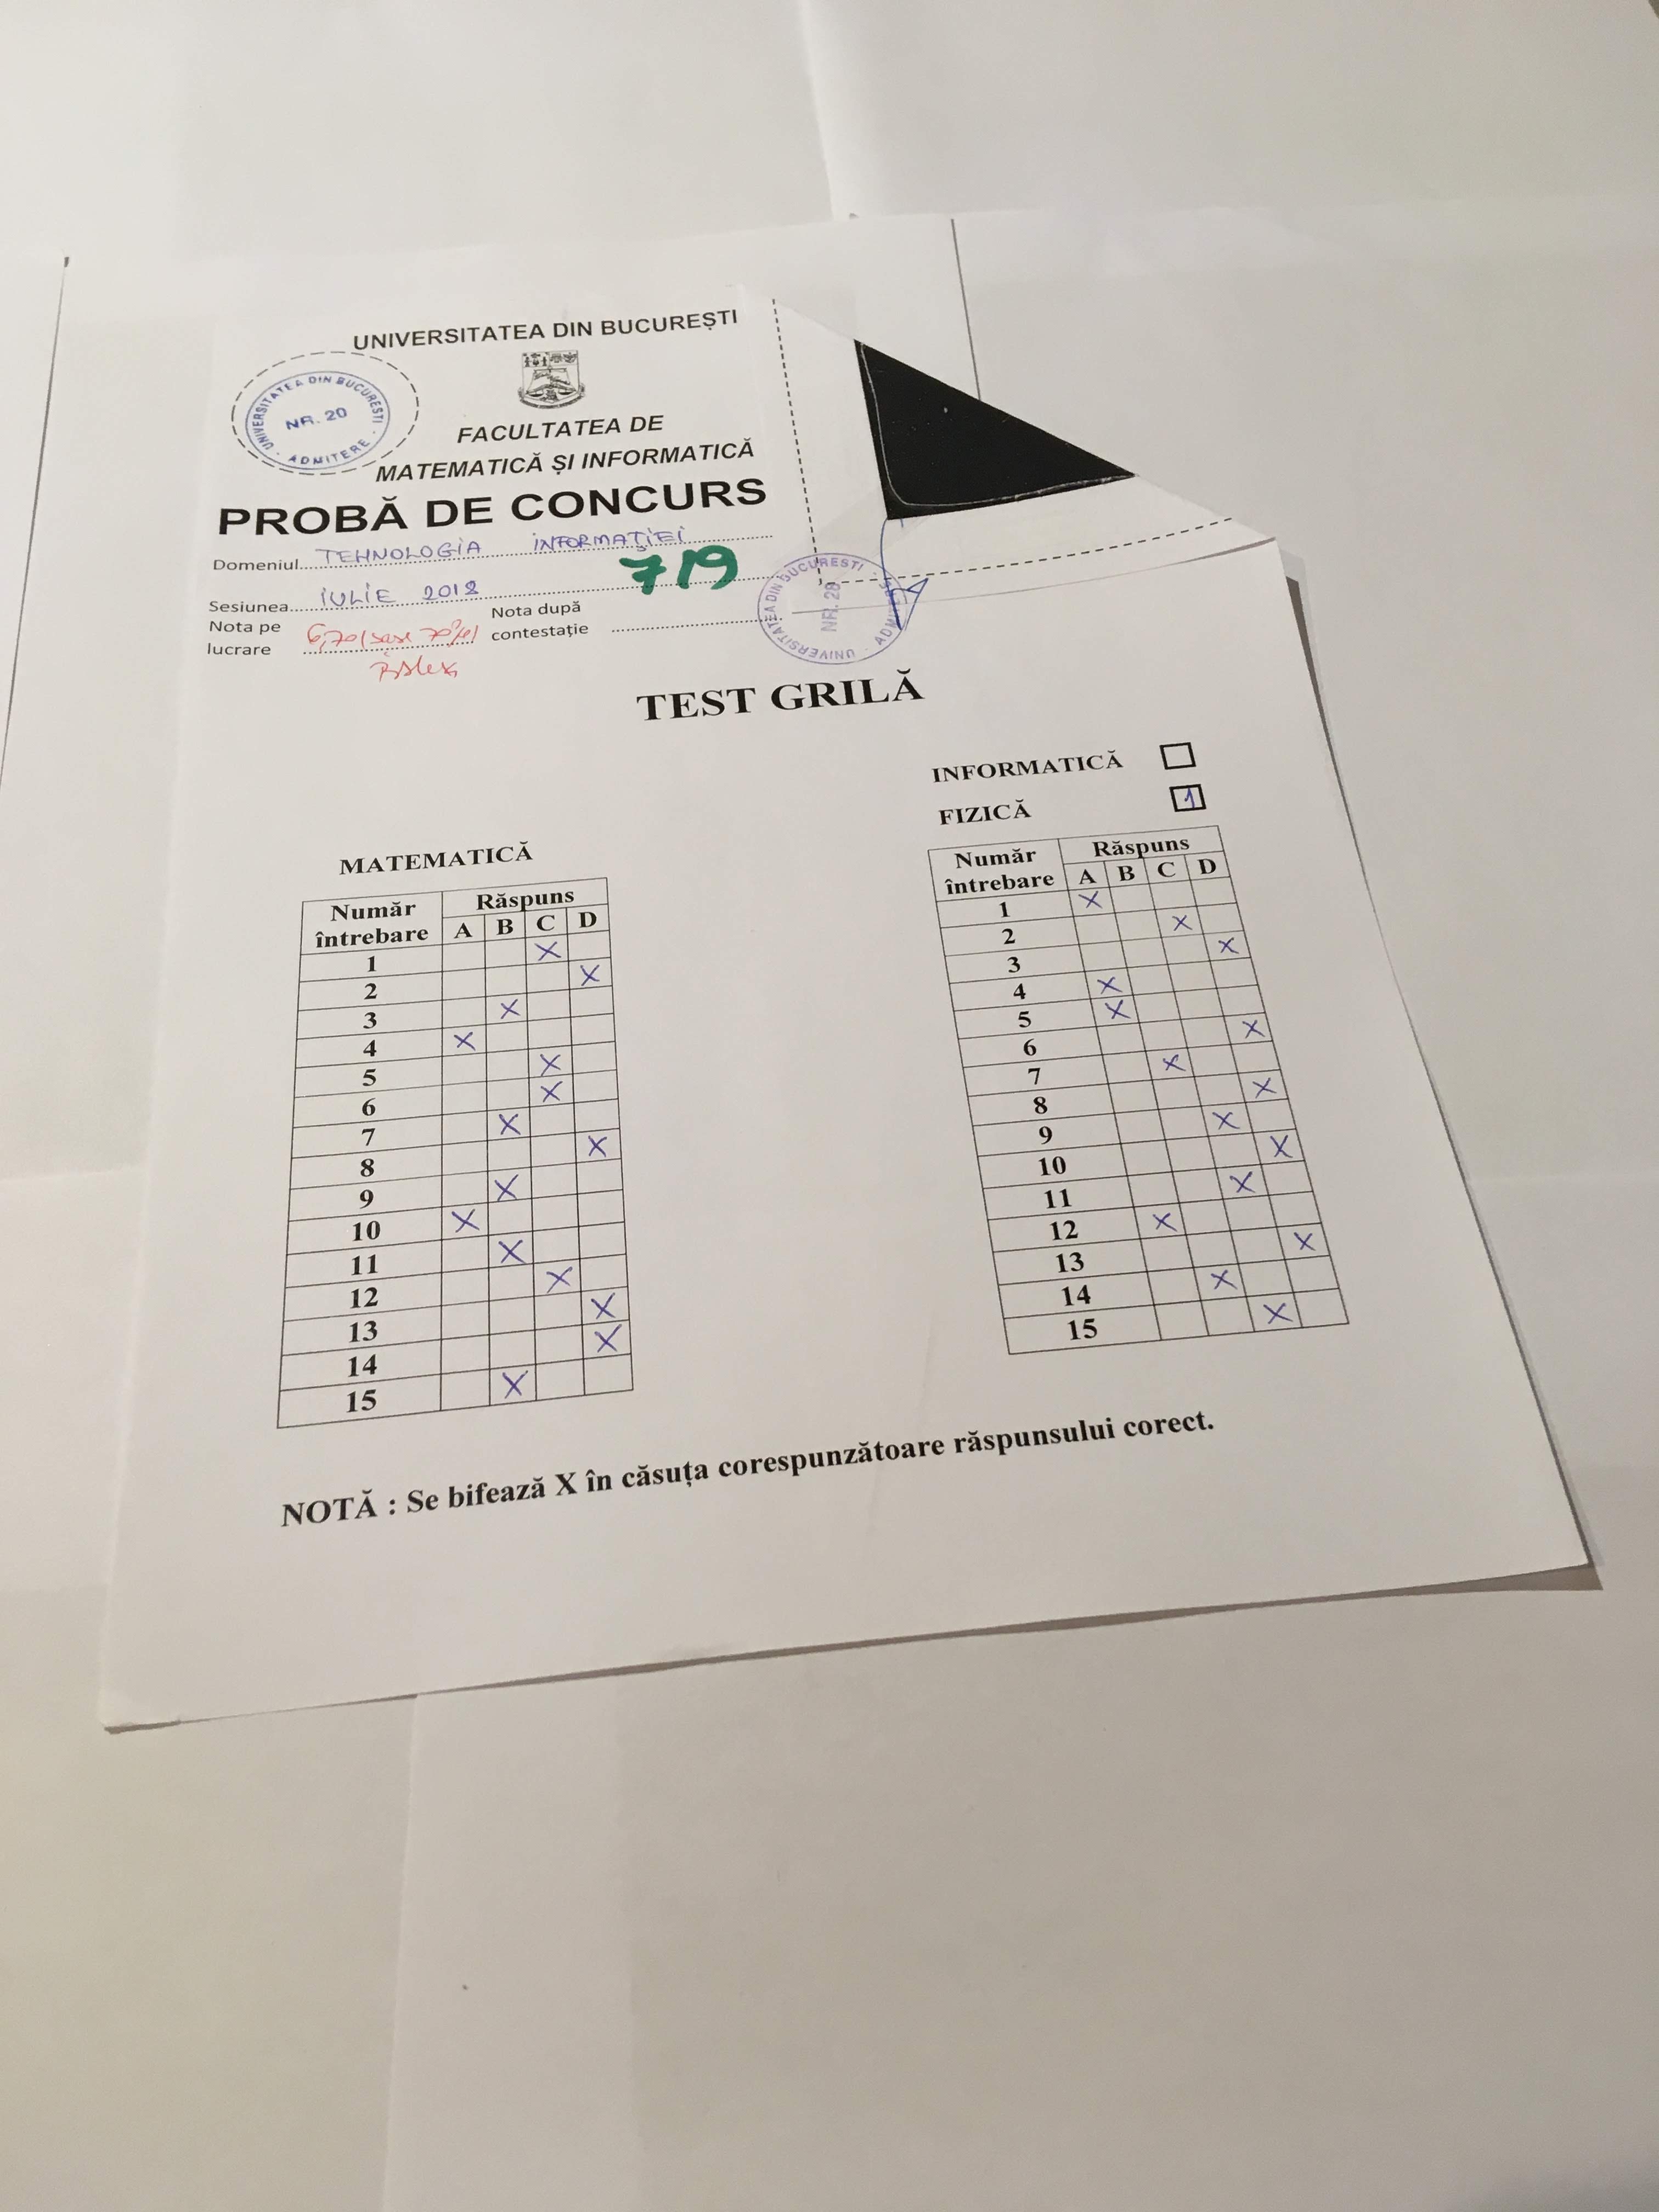 UNIVERSITATEA DIN BUCUREȘTI
UNIVERSITATEA DIN BUCURESTI
NR. 20
ADMITERE
FACULTATEA DE
MATEMATICĂ ȘI INFORMATICĂ
PROBĂ DE CONCURS
Domeniul TEHNOLOGIA INFORMAȚIEI
719
Sesiunea IULIE 2018
Nota pe lucrare 6,70 (șase 70%)
Nota după contestație
UNIVERSITATEA DIN BUCURESTI
NR. 20
ADMITERE
TEST GRILĂ
INFORMATICĂ
FIZICĂ 1
MATEMATICĂ
Număr întrebare Răspuns
A B C D
1 X
2 X
3 X
4 X
5 X
6 X
7 X
8 X
9 X
10 X
11 X
12 X
13 X
14 X
15 X
Număr întrebare Răspuns
A B C D
1 X
2 X
3 X
4 X
5 X
6 X
7 X
8 X
9 X
10 X
11 X
12 X
13 X
14 X
15 X
NOTĂ : Se bifează X în căsuța corespunzătoare răspunsului corect.